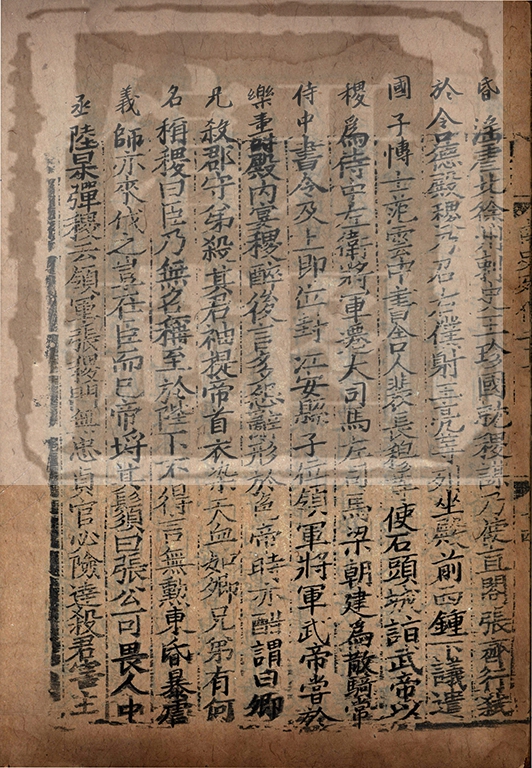 昏淫虐北徐州刺史王珍國就稷謀乃使直閤張齊行弒
於含德殿稷乃召右僕射王亮等列坐殿前西鐘下議遣
國子博士范雲中書舍人裴長穆等使石頭城詣武帝以
稷爲侍中左衛將軍遷大司馬左司馬梁朝建爲散騎常
侍中書令及上即位封江安縣子位領軍將軍武帝嘗於
樂壽殿內宴稷醉後言多怨辭形於色帝時亦酣謂曰卿
兄殺郡守弟殺其君袖提帝首衣染天血如卿兄弟有何
名稱稷曰臣乃無名稱至於陛下不得言無勳東昏暴虐
義師亦來伐之豈在臣而已帝埒其鬚曰張公可畏人中
丞陸杲彈稷云領軍張稷門無忠貞官必險達殺君害主